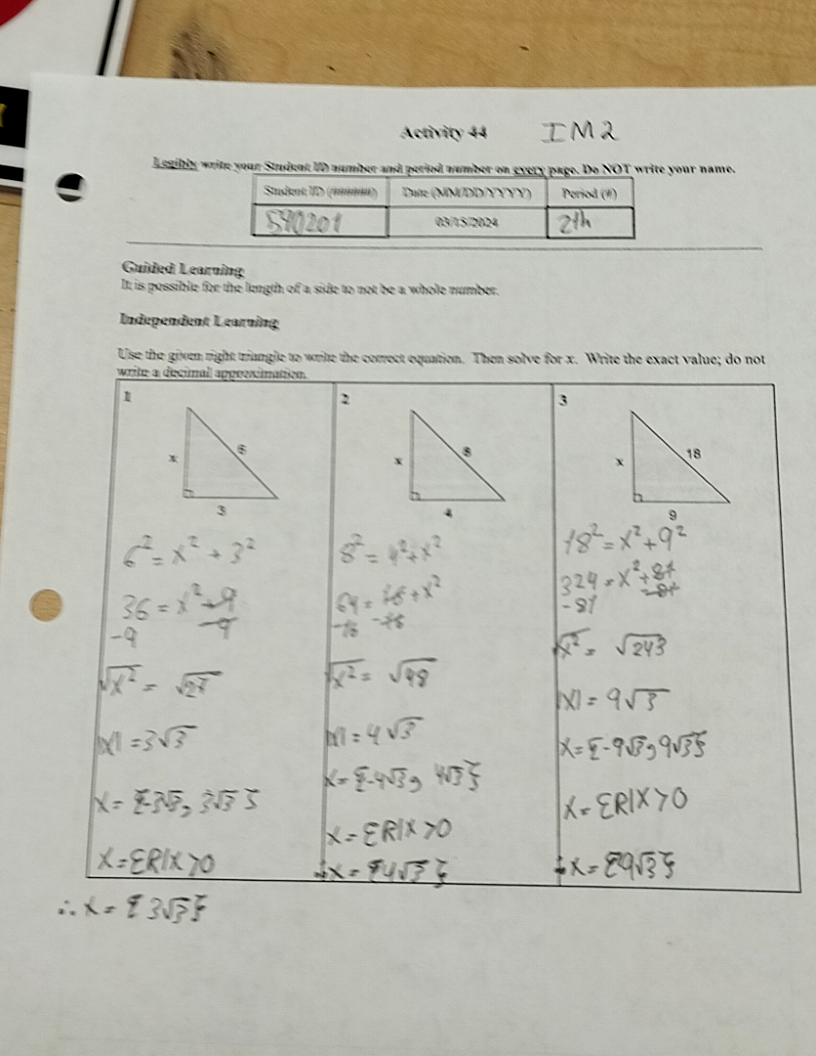 Activity 44 IM2
Legibly write your Student ID number and period number on every page. Do NOT write your name.
Student ID (######) Date (MM/DD/YYYY) Period (#)
590201 03/15/2024 2th
Guided Learning
It is possible for the length of a side to not be a whole number.
Independent Learning
Use the given right triangle to write the correct equation. Then solve for x. Write the exact value; do not
write a decimal approximation.
1
x
6
3
6² = x² + 3²
36 = x² + 9
-9 -9
√x² = √27
|x| = 3√3
x = {-3√3, 3√3}
x = ER|X>0
∴ x = {3√3}
2
x
8
4
8² = 4² + x²
64 = 16 + x²
-16 -16
√x² = √48
|x| = 4√3
x = {-4√3, 4√3}
x = ER|X>0
∴ x = {4√3}
3
x
18
9
18² = x² + 9²
324 = x² + 81
-81 -81
√x² = √243
|x| = 9√3
x = {-9√3, 9√3}
x = ER|X>0
∴ x = {9√3}